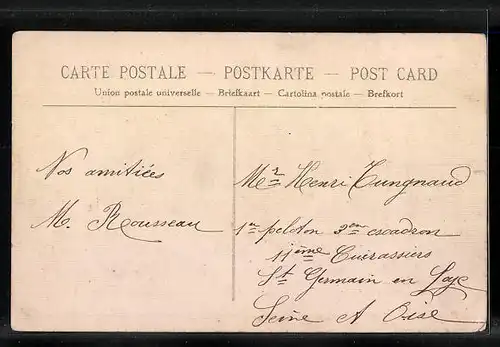 CARTE POSTALE — POSTKARTE — POST CARD
Union postale universelle — Briefkaart — Cartolina postale — Brefkort
Nos amitiées
M. Rousseau
Mr Henri Tungnaud
1er peloton 2en escadron
11ème Cuirassiers
St Germain en Laye
Seine et Oise